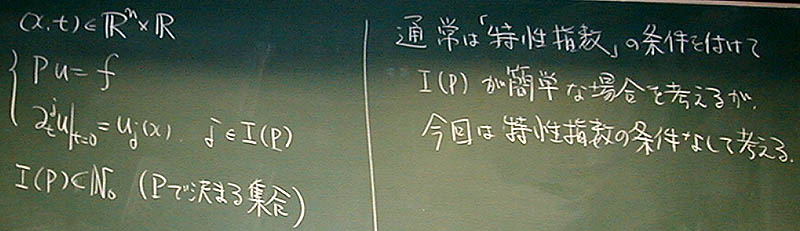 (x,t)∈ℝⁿ×ℝ
{ Pu=f
∂ₜʲu|ₜ₌₀=uⱼ(x), j∈I(P)
I(P)⊂ℕ₀ (Pで決まる集合)
通常は「特性指数」の条件を付けて
I(P)が簡単な場合を考えるが、
今回は特性指数の条件なしで考える.